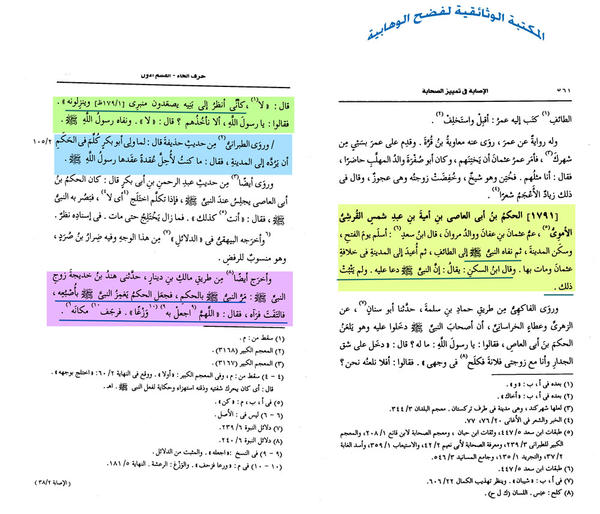 المكتبة الوثائقية لفضح الوهابية
٣٦١
الإصابة فى تمييز الصحابة
الطائفِ(١) كتَب إليه عمرُ: أقبِلْ واستَخلِفْ(٢).
وله روايةٌ عن عمرَ، روَى عنه معاويةُ بنُ قُرَّةَ. وقدِم على عمرَ بسَبْىٍ مِن
شهركَ(٣)، فأمَر عمرُ عثمانَ أن يَختِنَهم، وكان أبو صُفْرةَ والدُ المهلَّبِ حاضرًا،
فقال: أنا مثلُهم. فخُتِن وهو شيخٌ، وخُفِضَت زوجتُه وهى عجوزٌ، وقال فى
ذلك زيادٌ الأَعْجَمُ شعرًا(٤).
[١٧٩١] الحكمُ بنُ أبى العاصى بنِ أميةَ بنِ عبدِ شمسٍ القُرشِىُّ
الأموىُّ(٥)، عمُّ عثمانَ بنِ عفانَ ووالدُ مروانَ، قال ابنُ سعدٍ(٦): أسلَم يومَ الفتحِ،
وسكَن المدينةَ، ثم نفاه النبىُّ ﷺ إلى الطائفِ، ثم أُعيدَ إلى المدينةِ فى خلافةِ
عثمانَ ومات بها. وقال ابنُ السكنِ: يقالُ: إنَّ النبىَّ ﷺ دعا عليه. ولم يَثْبُتْ
ذلك.
وروَى الفاكهىُّ مِن طريقِ حمادِ بنِ سلمةَ، حدَّثنا أبو سنانٍ(٧)، عن
الزهرىِّ وعطاءٍ الخراسانىِّ، أن أصحابَ النبىِّ ﷺ دخَلوا عليه وهو يَلعَنُ
الحكمَ بنَ أبى العاصِ، فقالوا: يا رسولَ اللَّهِ، ما له؟ قال: «دخَل على شقِّ
الجدارِ وأنا مع زوجتى فلانةَ فكلَح(٨) فى وجهى». فقالوا: أفلا نلعنُه نحن؟
(١) بعده فى أ، ب: «و».
(٢) بعده فى أ، ب: «أخاك».
(٣) لعلها شهركند، وهى مدينة فى طرف تركستان. معجم البلدان ٣٤٤/٣.
(٤) الخبر والشعر فى الأغانى ٧٦/٢٠، ٧٧.
(٥) طبقات ابن سعد ٤٤٧/٥، وثقات ابن حبان، ومعجم الصحابة لابن قانع ٢٠٨/١، والمعجم
الكبير للطبرانى ٢٣٩/٣، ومعرفة الصحابة لأبى نعيم ٤٢/٢، والاستيعاب ٣٥٩/١، وأسد الغابة
٣٧/٢، والتجريد ١٣٥/١، وجامع المسانيد ٥٤٦/٣.
(٦) طبقات ابن سعد ٤٤٧/٥.
(٧) فى أ، ب: «شيبان». وينظر تهذيب الكمال ٦٠٦/٢٢.
(٨) كلح: عبس. اللسان (ك ل ح).
حرف الحاء - القسم الأول
قال: «لا(١)، كأنِّى أنظرُ إلى بَنِيه يصعَدون منبرى [١٧٩/١ظ] ويَنزِلونه».
فقالوا: يا رسولَ اللَّهِ، ألا نأخُذُهم؟ قال: «لا». ونفاه رسولُ اللَّهِ ﷺ.
/ وروَى الطبرانىُّ(٢) مِن حديثِ حذيفةَ قال: لما ولِى أبو بكرٍ كُلِّم فى الحَكَمِ
١٠٥/٢
أن يَرُدَّه إلى المدينةِ، فقال: ما كنتُ لأَحُلَّ عُقدةً عقَدها رسولُ اللَّهِ ﷺ.
وروَى أيضًا(٣) مِن حديثِ عبدِ الرحمنِ بنِ أبى بكرٍ قال: كان الحكمُ بنُ
أبى العاصى يجلِسُ عندَ النبىِّ ﷺ، فإذا تكلَّم اختلَج(٤) أى لا(٤)، فبَصُر به النبىُّ
ﷺ، فقال: «أنت(٥) كذلك». فما زال يَختلِجُ حتى مات. فى إسنادِه نظرٌ.
(٦)وأخرَجه البيهقىُّ فى «الدلائلِ»(٧) مِن هذا الوجهِ وفيه ضِرارُ بنُ صُرَدٍ،
وهو منسوبٌ للرفضِ.
وأخرَج أيضًا(٨) مِن طريقِ مالكِ بنِ دينارٍ، حدَّثنى هندُ بنُ خديجةَ زوجِ
النبىِّ ﷺ: مرَّ النبىُّ ﷺ بالحكمِ، فجعَل الحكمُ يَغمِزُ النبىَّ ﷺ بأُصْبُعِه،
فالتَفَت فرَآه، فقال: «اللهمَّ(٩) اجعَلْ به(٩) وَزْغًا». فرجَف(١٠) مكانَه(١٠).
(١) سقط من: م.
(٢) المعجم الكبير (٣١٦٨).
(٣) المعجم الكبير (٣١٦٧).
(٤ - ٤) سقط من: م، وفى المعجم الكبير: «أولا». ووقع فى النهاية ٦٠/٢: «اختلج بوجهه».
قال: أى كان يحرك شفتيه وذقنه استهزاء وحكاية لفعل النبى ﷺ. اهـ.
(٥) فى أ، ب، م: «كن».
(٦ - ٦) ليس فى: الأصل.
(٧) دلائل النبوة ٢٣٩/٦.
(٨) دلائل النبوة ٢٤٠/٦.
(٩ - ٩) فى النسخ: «اجعله». والمثبت من الدلائل.
(١٠ - ١٠) فى م: «ورعا فزحف». والوَزْغ: الرعشة. النهاية ١٨١/٥.
(الإصابة ٣٨/٢)